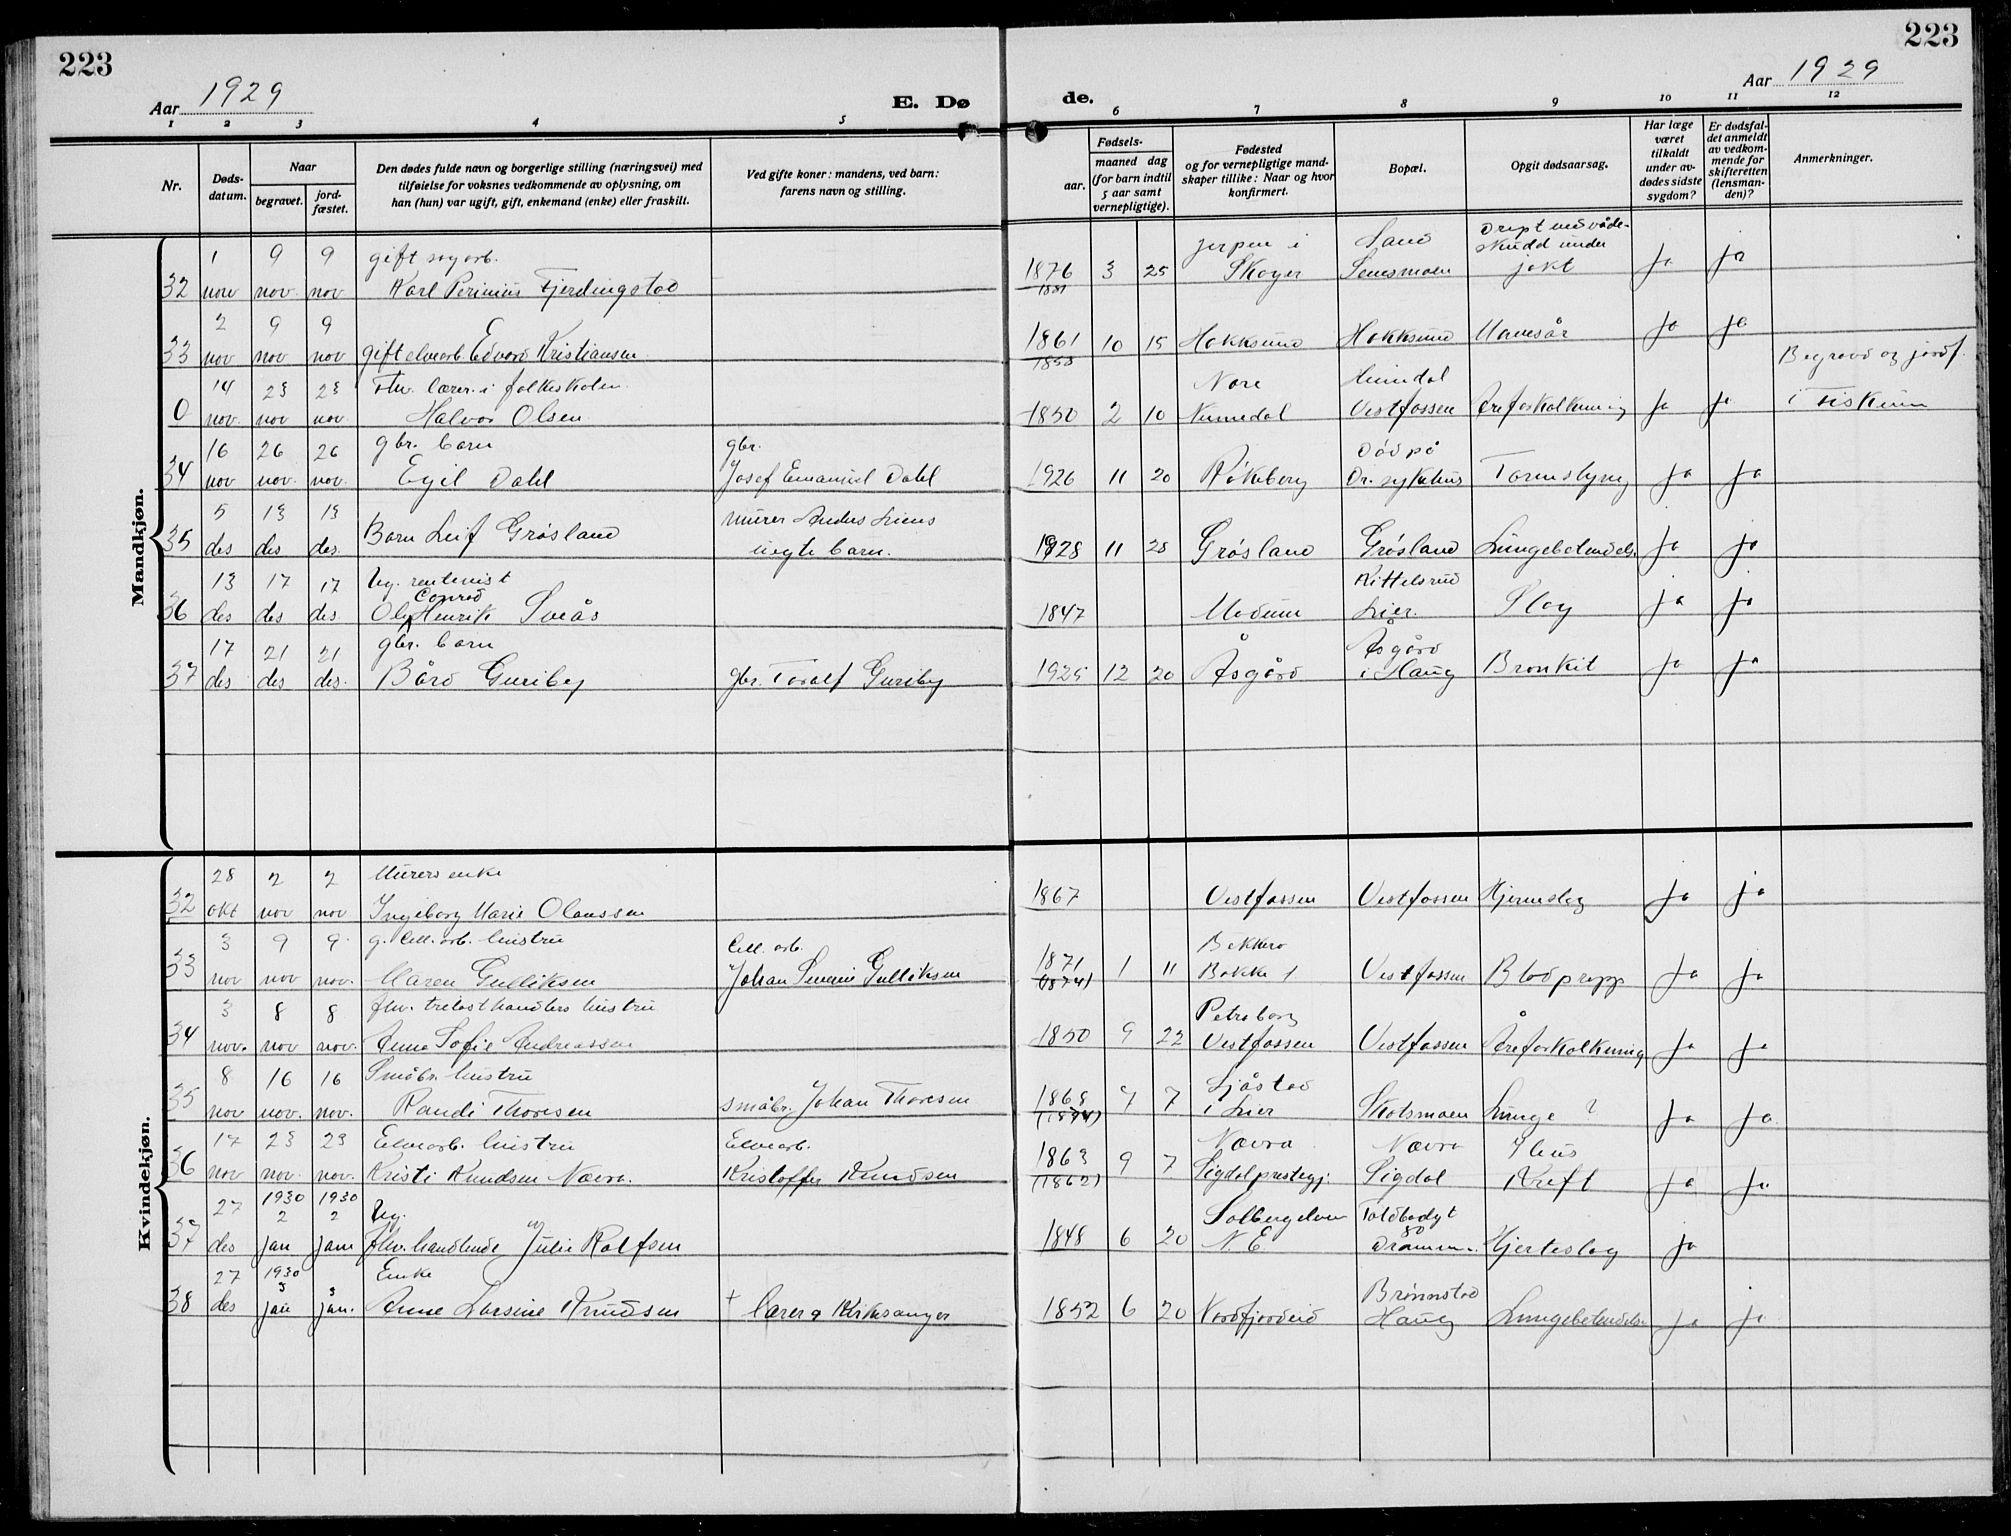 223
223
Aar 1929
E. Dø
de.
Aar 1929
1 2 3 4 5 6 7 8 9 10 11 12
Nr.
Døds-
datum.
Naar
begravet.
jord-
fæstet.
Den dødes fulde navn og borgerlige stilling (næringsvei) med
tilføielse for voksnes vedkommende av oplysning, om
han (hun) var ugift, gift, enkemand (enke) eller fraskilt.
Ved gifte koner: mandens, ved barn:
farens navn og stilling.
Fødsels-
aar.
maaned dag
(for barn indtil
5 aar samt
vernepligtige).
Fødested
og for vernepligtige mand-
skaper tillike: Naar og hvor
konfirmert.
Bopæl.
Opgit dødsaarsag.
Har læge
været
tilkaldt
under av-
dødes sidste
sygdom?
Er dødsfal-
det anmeldt
av vedkom-
mende for
skifteretten
(lensman-
den)?
Anmerkninger.
Mandkjøn.
1 9 9 gift sagarb. i Sand Drept ved våde-
skudd under
32 nov nov. nov Karl Fjerdingstad 1876 3 25 Skoger jakt ja ja
2 9 9
33 nov nov nov gift elvearb. Edvard Kristiansen 1861 10 15 Hokksund Hokksund ja ja
1853
Begravd og jordf.
14 23 23 Fhv. lærer i folkeskolen Nore Heimdal
0 nov. nov. nov. Halvor Olsen 1850 2 10 Numedal Vestfossen Åreforkalkning ja ja i Fiskum
16 26 26 gbr. barn gbr. Død på
34 nov nov. nov. Egil Dahl Josef Emanuel Dahl 1926 11 20 Røkeberg Dr. sykehus Tarmslyng ja ja
5 13 13 murer Anders Liens
35 des des des. Barn Leif Grøsland uegte barn. 1928 11 28 Grøsland Grøsland Lungebetendels. ja ja
13 17 17 Ug. rentenist Kittelsrud
Conrad
36 des des des. Ole Henrik Sveås 1847 Modum Lier. Slag ja ja
17 21 21 gbr. barn Åsgård
37 des des des. Bård Guriby gbr. Toralf Guriby 1925 12 20 Åsgård i Haug Bronkit ja ja
Kvindekjøn.
28 2 2 Murers enke
32 okt nov nov Ingeborg Marie Olaussen 1867 Vestfossen Vestfossen Hjerneslag ja ja
3 9 9 g. Cell. arb. hustru Cell. arb.
33 nov nov nov. Maren Gulliksen Johan Gulliksen 1871 1 11 Bakke Vestfossen Blodpropp ja ja
(1874)
3 8 8 fhv. trelasthandlers hustru
34 nov. nov nov. Anne Sofie Andreassen 1850 9 22 Vestfossen Vestfossen Åreforkalkning ja ja
8 16 16 Småbr. hustru Sjåstad
35 nov nov. nov. Randi Thoresen småbr. Johan Thoresen 1868 7 7 i Lier Skotsmoen Lunge ? ja ja
(1874)
17 23 23 Elvearb. hustru Elvearb. Nævra Nævra
36 nov nov. nov. Kristi Knudsen Nævra. Kristoffer Knudsen 1863 9 7 Sigdal prestegj. Sigdal Kreft ja ja
(1862)
27 1930 1930 Ug. Solbergelven Toldbodgt
2 2 80
37 des jan jan fhv. handlende Julie Rolfsen 1848 6 20 N. E. Dramm. Hjerteslag ja
27 1930 Enke Brønnstad
3 3
38 des jan jan. Anne Larsine Knudsen † lærer & Kirkesanger 1852 6 20 Nordfjordeid Haug Lungebetendels. ja ja